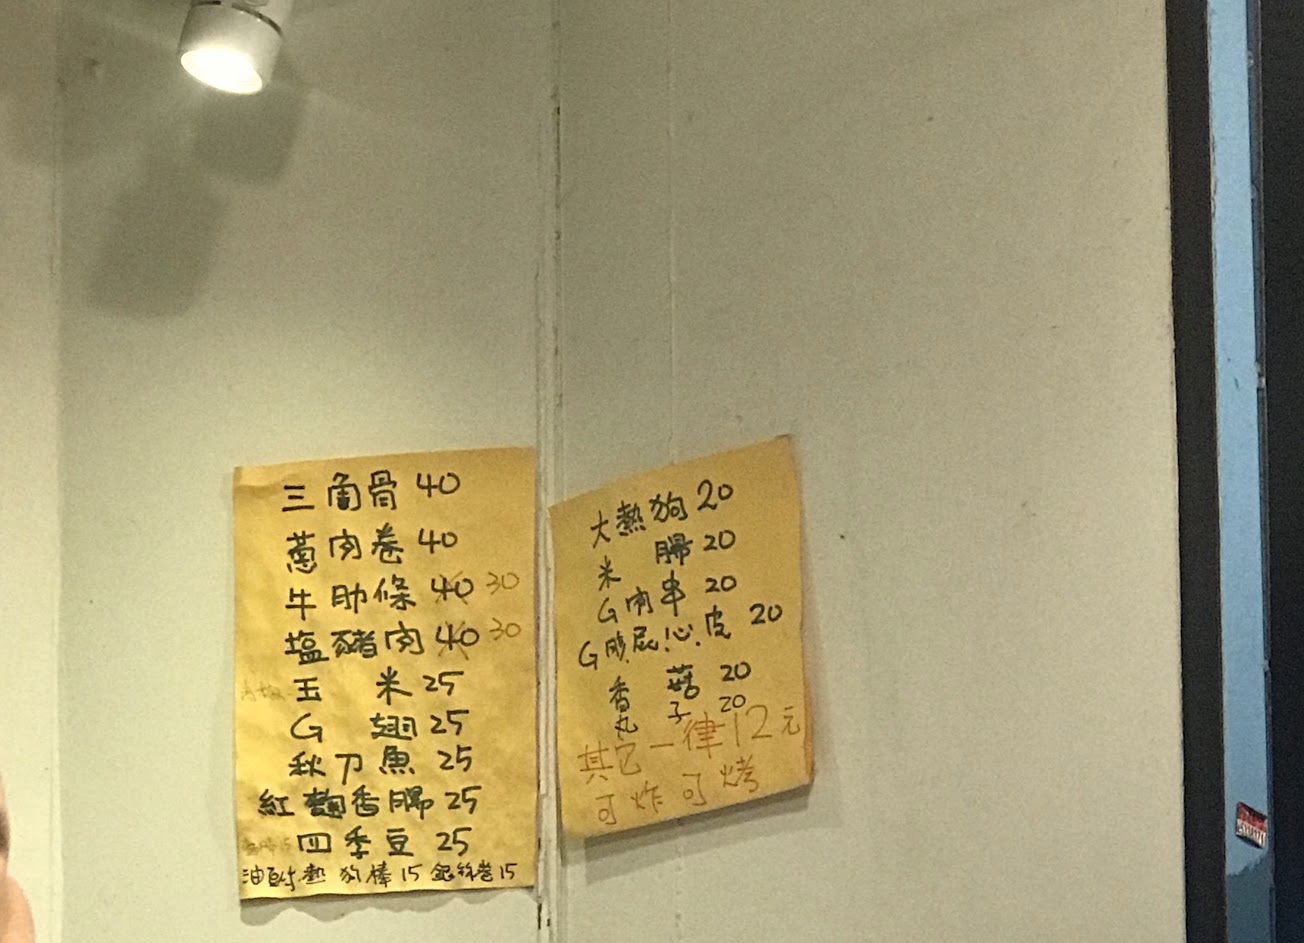 三角骨 40
蔥肉卷 40
牛肋條 40 30
塩豬肉 40 30
玉米 25
G翅 25
秋刀魚 25
紅麴香腸 25
四季豆 25
油酥熱狗棒 15 銀絲卷 15
大熱狗 20
米腸 20
G肉串 20
G胗.屁.心.皮 20
香菇 20
丸子 20
其它一律12元
可炸可烤